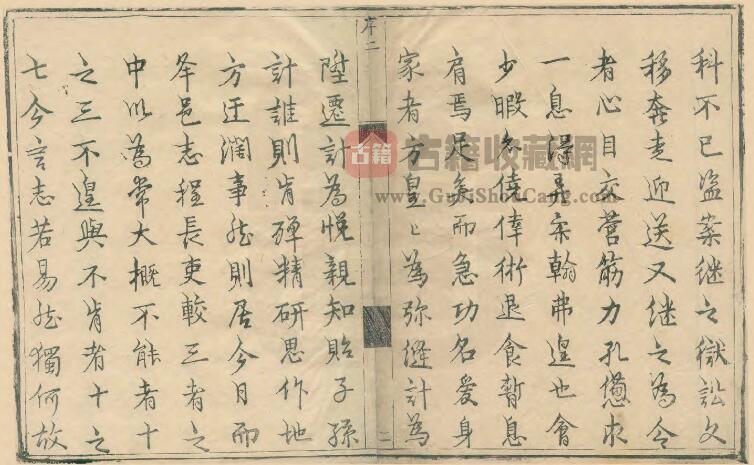 科不已盜案继之獄訟文
移奔走迎送又继之為令
者心目交营筋力孔憊求
一息濡毫染翰弗遑也會
少暇僥倖術退食暫息
肩焉足矣而急功名爱身
家者方皇〻為弥縫計為
序二
二
陞遷計為悦親知貽子孫
計誰則肯殫精研思作地
方迂濶事然則居今日而
举邑志程長吏較三者之
中以為常大概不能者十
之三不遑與不肯者十之
七今言志若易然獨何故
古籍
古籍收藏網
www.GujiShouCang.com